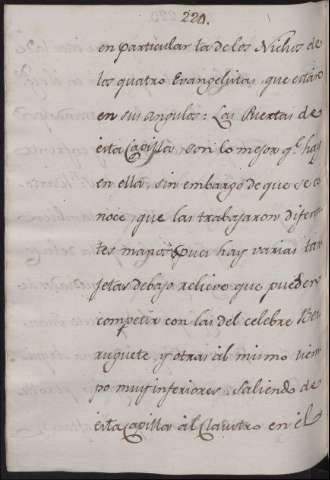 220.
en particular la de los Nichos de
los quatro Evangelistas, que estàn
en sus angulos: Las Puertas de
esta Capilla, son lo mejor q.^e hay
en ella, sin embargo de que se co
noce, que las trabajaron diferen
tes manos, pues hay varias tar
jetas de bajo relievo que pueden
competir con las del celebre Ber
ruguete, y otras al mismo tiem
po muy inferiores. Saliendo de
esta Capilla al Claustro en el